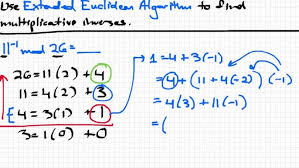 Use Extended Euclidean Algorithm to find
multiplicative inverses.
11⁻¹ mod 26 =
26 = 11(2) + 4
11 = 4(2) + 3
4 = 3(1) + 1
3 = 1(0) + 0
1 = 4 + 3(-1)
= 4 + (11 + 4(-2))(-1)
= 4(3) + 11(-1)
= (